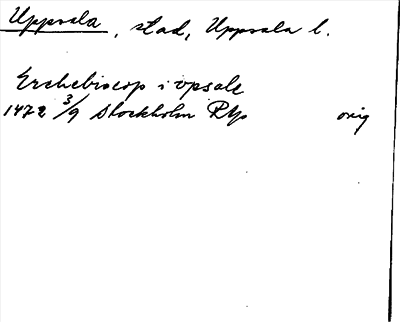 Uppsala, stad, Uppsala l.
Erchebiscop i vpsale
1472 3/9 Stockholm RAp orig